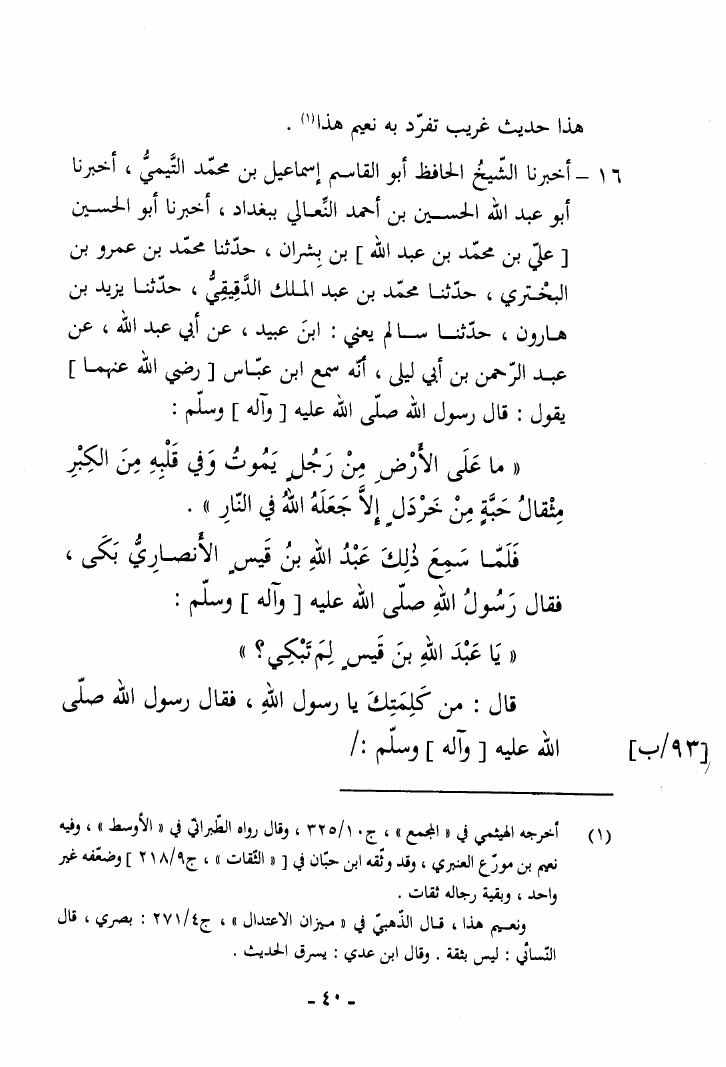 هذا حديث غريب تفرّد به نعيم هذا(١) .
١٦ – أخبرنا الشّيخُ الحافظ أبو القاسم إسماعيل بن محمّد التَّيميُّ ، أخبرنا
أبو عبد الله الحسين بن أحمد النِّعالي ببغداد ، أخبرنا أبو الحسين
[ عليّ بن محمّد بن عبد الله ] بن بِشران ، حدّثنا محمّد بن عمرو بن
البخْتري ، حدّثنا محمّد بن عبد الملك الدَّقِيقِيُّ ، حدّثنا يزيد بن
هارون ، حدّثنا سالم يعني : ابنَ عبيد ، عن أبي عبد الله ، عن
عبد الرّحمن بن أبي ليلى ، أنّه سمع ابن عبّاس [ رضي الله عنهما ]
يقول : قال رسول الله صلّى الله عليه [ وآله ] وسلّم :
« ما عَلَى الأَرْضِ مِنْ رَجُلٍ يَمُوتُ وَفي قَلْبِهِ مِنَ الكِبْرِ
مِثْقالُ حَبَّةٍ مِنْ خَرْدَلٍ إلاَّ جَعَلَهُ اللهُ في النّارِ » .
فَلَمَّا سَمِعَ ذٰلِكَ عَبْدُ اللهِ بنُ قَيسٍ الأَنصاريُّ بَكَى ،
فقال رَسُولُ اللهِ صلّى الله عليه [ وآله ] وسلّم :
« يَا عَبْدَ اللهِ بنَ قَيسٍ لِمَ تَبْكِي؟ »
قال : من كَلِمَتِكَ يا رسول اللهِ ، فقال رسول الله صلّى
الله عليه [ وآله ] وسلّم :/
[٩٣/ب]
(١) أخرجه الهيثمي في « المجمع » ، ج٣٢٥/١٠ ، وقال رواه الطّبرانيّ في « الأوسط » ، وفيه
نعيم بن مورّع العنبري ، وقد وثّقه ابن حبّان في [ « الثّقات » ، ج٢١٨/٩ ] وضعّفه غير
واحد ، وبقية رجاله ثقات .
ونعيم هذا ، قال الذّهبيّ في « ميزان الاعتدال » ، ج٢٧١/٤ : بصري ، قال
النّسائي : ليس بثقة . وقال ابن عدي : يسرق الحديث .
- ٤٠ -